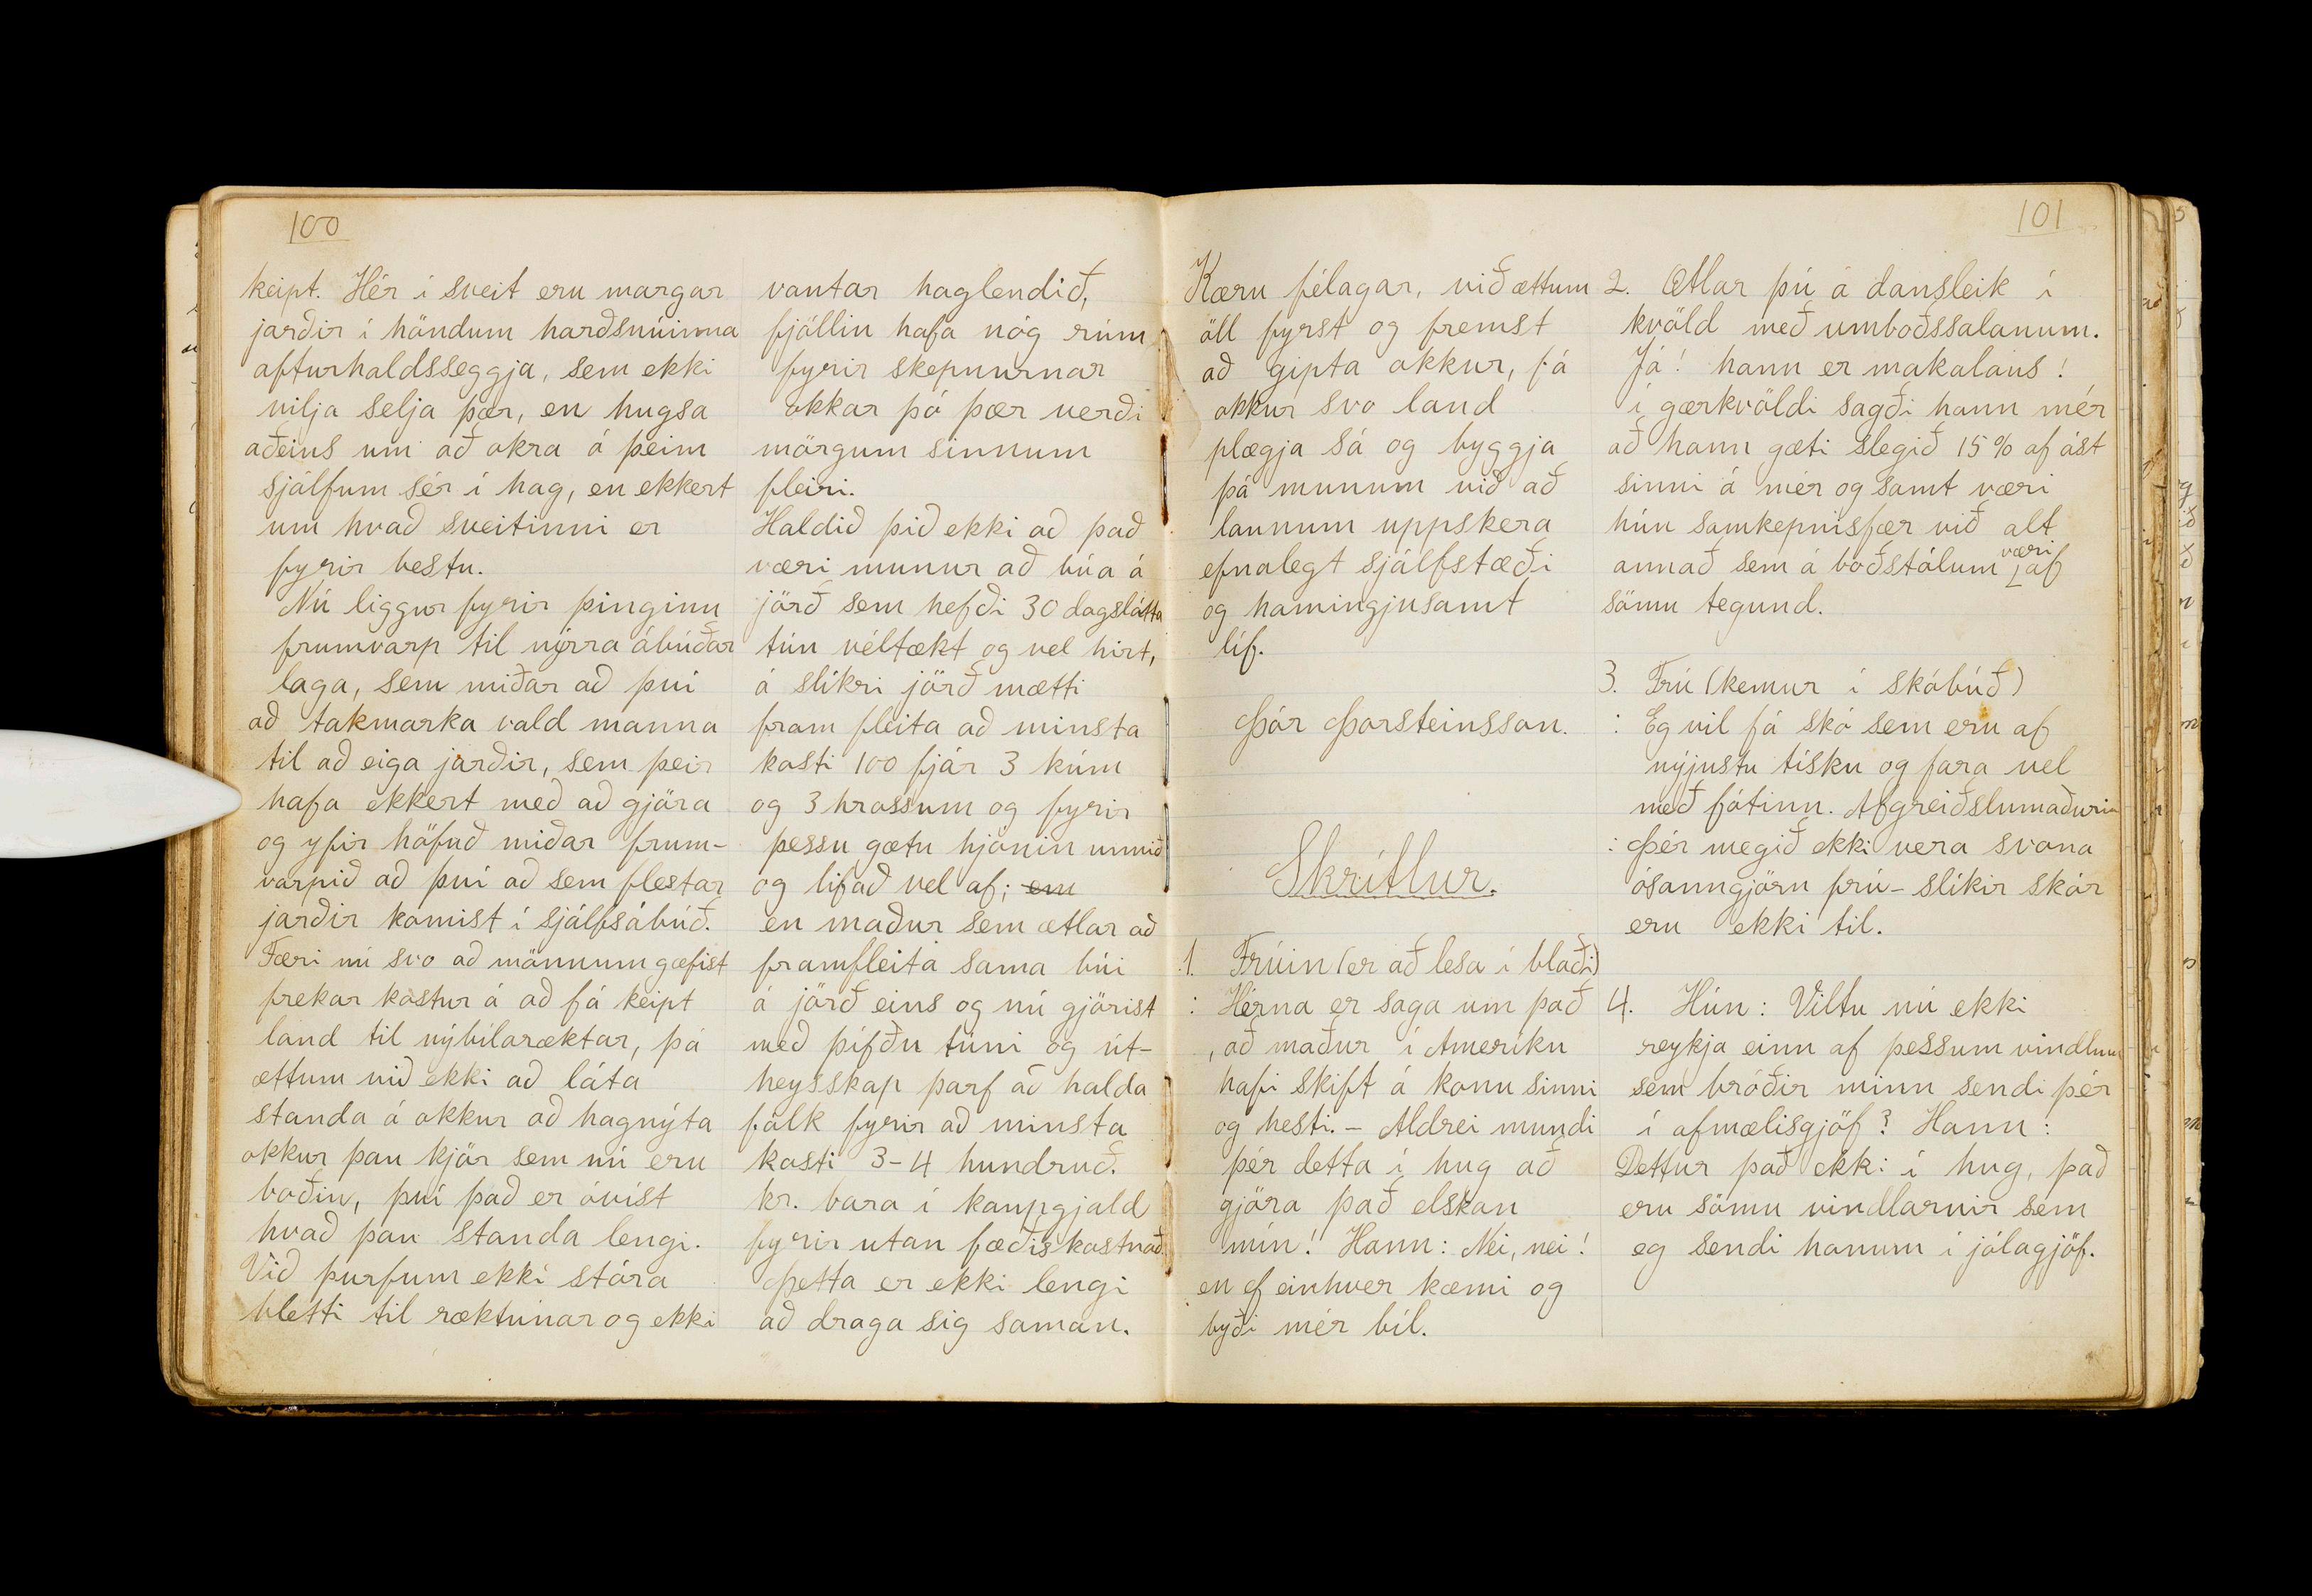 100
keipt. Hér í sveit eru margar
jarðir í höndum harðsnúinna
afturhaldsseggja, sem ekki
vilja selja þær, en hugsa
aðeins um að okra á þeim
sjálfum sér í hag, en ekkert
um hvað sveitinni er
fyrir bestu.
Nú liggur fyrir þinginu
frumvarp til nýrra ábúðar
laga, sem miðar að því
að takmarka vald manna
til að eiga jarðir, sem þeir
hafa ekkert með að gjöra
og yfir höfuð miðar frum-
varpið að því að sem flestar
jarðir komist í sjálfsábúð.
Færi nú svo að mönnum gæfist
frekar kostur á að fá keipt
land til nýbílaræktar, þá
ættum við ekki að láta
standa á okkur að hagnýta
okkur þau kjör sem nú eru
boðin, því það er óvíst
hvað þau standa lengi.
Við þurfum ekki stóra
bletti til ræktunar og ekki
vantar haglendið,
fjöllin hafa nóg rúm
fyrir skepnurnar
okkar þó þær verði
mörgum sinnum
fleiri.
Haldið þið ekki að það
væri munur að búa á
jörð sem hefði 30 dagslátta
tún véltækt og vel hirt,
á slíkri jörð mætti
fram fleita að minsta
kosti 100 fjár 3 kúm
og 3 hrossum og fyrir
þessu gætu hjónin unnið
og lifað vel af; em
en maður sem ætlar að
framfleita sama búi
á jörð eins og nú gjörist
með þífðu túni og út-
heysskap þarf að halda
fólk fyrir að minsta
kosti 3-4 hundruð.
kr. bara í kaupgjald
fyrir utan fæðiskostnað.
Þetta er ekki lengi
að draga sig saman.
101
Kæru félagar, við ættum
öll fyrst og fremst
að gipta okkur, fá
okkur svo land
plægja sá og byggja
þá munum við að
launum uppskera
efnalegt sjálfstæði
og hamingjusamt
líf.
Þór Þorsteinsson.
Skrítlur.
1. Frúin (er að lesa í blaði)
: Hérna er saga um það
, að maður í Ameríku
hafi skift á konu sinni
og hesti. - Aldrei mundi
þér detta í hug að
gjöra það elskan
mín! Hann: Nei, nei!
en ef einhver kæmi og
byði mér bíl.
2. Ætlar þú á dansleik í
kvöld með umboðssalanum.
Já! hann er makalaus!
í gærkvöldi sagði hann mér
að hann gæti slegið 15% af ást
sinni á mér og samt væri
hún samkepnisfær við alt
annað sem á boðstólum væri af
sömu tegund.
3. Frú (kemur í skóbúð)
: Eg vil fá skó sem eru af
nýjustu tísku og fara vel
með fótinn. Afgreiðslumaðurin
: Þér megið ekki vera svona
ósanngjörn frú - slíkir skór
eru ekki til.
4. Hún: Viltu nú ekki
reykja einn af þessum vindlum
sem bróðir minn sendi þér
í afmælisgjöf? Hann:
Dettur það ekki í hug, það
eru sömu vindlarnir sem
eg sendi honum í jólagjöf.